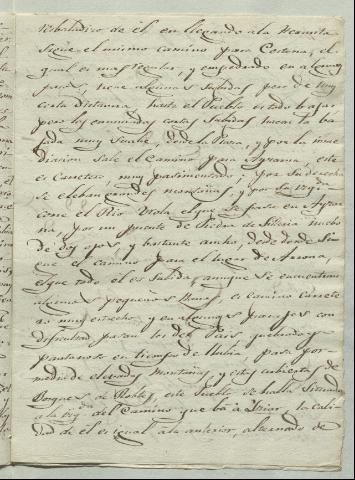 resbaladizo de el en llegando a la Hermita
sigue el mismo camino para Cestona, el
qual es mas regular, y empedrado en algunas
partes, tiene algunas subidas pero de muy
corta distancia, hasta el Pueblo es todo bajar
pero las encontradas cortas subidas hacen la ba
jada muy suabe, desde la Plaza, y por la inme
diacion sale el Camino para Ayzarna, este
es Carretero muy, por su derecha
se eleban grandes montañas, y por su izqda
corre el Rio Urola, el que se pasa en
por un puente de Piedra de Silleria mucho
de dos ojos, y bastante ancho, desde donde sigue
el camino para el lugar de Arrona,
el que todo el es subida, aunque se encuentran
algunos pequeños llanos, es camino carrete
ro muy estrecho, y en algunos parages con
dificultad pasan los del Pais, quebrado y
pantanoso en tiempo de llubia, pasa por
medio de elevadas Montañas, y estas cubiertas de
Bosques de Robles, este Pueblo se halla situado
a la izqda del Camino que bá a Iziar, la cali
dad de el es igual a la anterior, alternado de